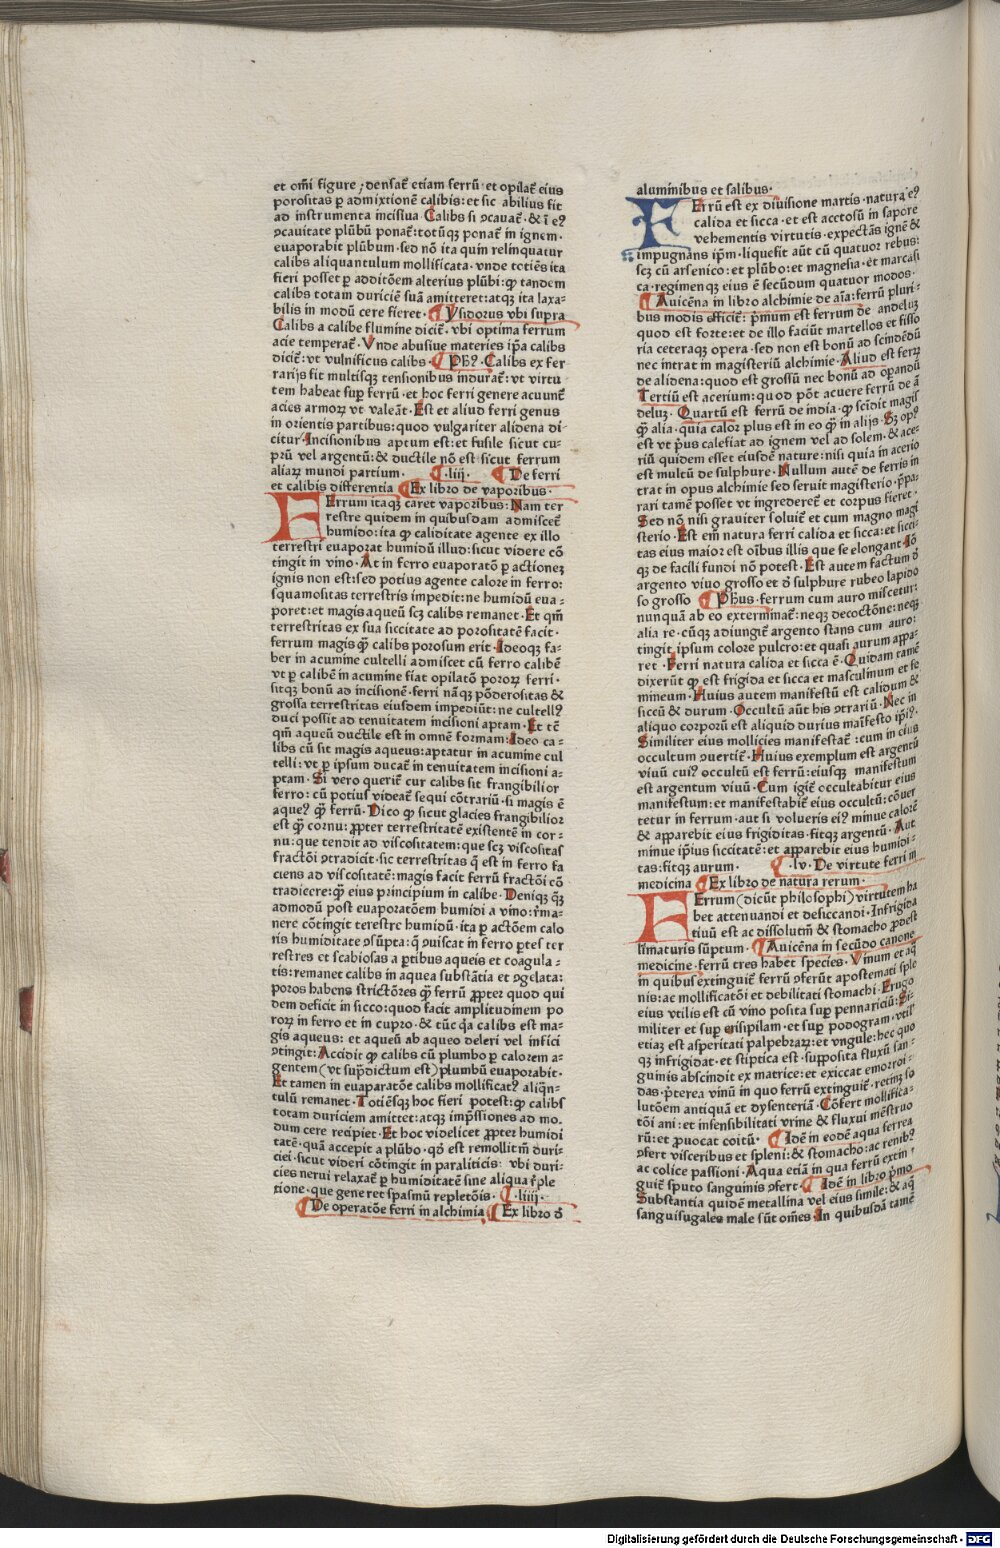 et om̄i figure ; densat᷑ etiam ferrū· et opilat᷑ eius
porositas ꝑ admixtionē calibis: et sic abilius fit
ad instrumenta incisiua Calibs si ↄcauat᷑· & ī eꝰ
ↄcauitate plūbū ponat᷑: totūqꝫ ponat᷑ in ignem·
euaporabit plūbum· sed nō ita quin relinquatur
calibs aliquantulum mollificata· vnde totiēs ita
fieri posset ꝑ additōem alterius plūbi: ꝙ tandem
calibs totam duriciē suā amitteret: atqꝫ ita laxa⸗
bilis in modū cere fieret· Ysidorus vbi supra
Calibs a calibe flumine dicit᷑· vbi optima ferrum
acie temperat᷑· Vnde abusiue materies ip̄a calibs
dicit᷑: vt vulnificus calibs· Ph̄ꝰ· Calibs ex fer
rarijs fit multisqꝫ tensionibus indurat᷑: vt virtu
tem habeat suꝑ ferrū· et hoc ferri genere acuunt᷑
acies armoꝝ vt valeāt· Est et aliud ferri genus
in orientis partibus: quod vulgariter alidena di⸗
citur Incisionibus aptum est: et fusile sicut cu⸗
prū vel argentū: & ductile nō est sicut ferrum
aliaꝝ mundi partium· ·liij· De ferri
et calibis differentia Ex libro de vaporibus·
FErrum itaqꝫ caret vaporibus: Nam ter
restre quidem in quibusdam admiscet᷑
humido: ita ꝙ caliditate agente ex illo
terrestri euaporat humidū illud: sicut videre cō
tingit in vino· At in ferro euaporatō ꝑ actioneꝫ
ignis non est: sed potius agente calore in ferro:
squamositas terrestris impedit: ne humidū eua⸗
poret: et magis aqueū scꝫ calibs remanet· Et qm̄
terrestritas ex sua siccitate ad porositatē facit·
ferrum magis qȝ̄ calibs porosum erit· Ideoqꝫ fa⸗
ber in acumine cultelli admiscet cū ferro calibē
vt ꝑ calibē in acumine fiat opilatō poroꝝ ferri·
sitqꝫ bonū ad incisionē· ferri nāqꝫ pōderositas &
grossa terrestritas eiusdem impediūt: ne cultellꝰ
duci possit ad tenuitatem incisioni aptam· Et tē
qm̄ aqueū ductile est in omnē formam: Ideo ca⸗
libs cū sit magis aqueus: aptatur in acumine cul
telli: vt ꝑ ipsum ducat᷑ in tenuitatem incisioni a⸗
ptam· Si vero querit᷑ cur calibs sit frangibilior
ferro: cū potius videat᷑ sequi cōtrariū· si magis ē
aqueꝰ qȝ̄ ferrū· Dico ꝙ sicut glacies frangibilior
est qȝ̄ cornu: ꝓpter terrestritatē existentē in cor⸗
nu: que tendit ad viscositatem: que scꝫ viscositas
fractōi ↄtradicit· sic terrestritas q̄ est in ferro fa
ciens ad viscositatē: magis facit ferrū fractōi cō
tradicere: qȝ̄ eius principium in calibe· Deniqꝫ qȝ̄
admodū post euaporatōem humidi a vino: r̄ma⸗
nere cōtingit terestre humidū· ita ꝑ actōem calo
ris humiditate ↄsūpta: q̄ ↄuiscat in ferro ꝑtes ter
restres et scabiosas a ꝑtibus aqueis et coagula⸗
tis: remanet calibs in aquea substātia et ↄgelata:
poros habens strictōres qȝ̄ ferrū ꝓpter quod qui
dem deficit in sicco: quod facit amplitudinem po
roꝝ in ferro et in cupro· & tūc q̄a calibs est ma⸗
gis aqueus: et aqueū ab aqueo deleri vel infici
ↄtingit: Accidit ꝙ calibs cū plumbo ꝑ calorem a⸗
gentem (vt sup̄dictum est) plumbū euaporabit·
Et tamen in euaparatōe calibs mollificatꝰ aliq̄n⸗
tulū remanet· Totiēsqꝫ hoc fieri potest: ꝙ calibs
totam duriciem amittet: atqꝫ imp̄ssiones ad mo⸗
dum cere recipiet· Et hoc videlicet ꝓpter humidi
tatē· quā accepit a plūbo· qō est remollitm̄ duri⸗
ciei· sicut videri cōtingit in paraliticis: vbi duri⸗
cies nerui relaxat᷑ ꝑ humiditatē sine aliqua r̄ple
tione· que generet spasmū repletōis· ·liiij·
De operatōe ferri in alchimia· Ex libro d̄
aluminibus et salibus·
FErrū est ex diuisione martis· natura eꝰ
calida et sicca· et est acetosū in sapore
vehementis virtutis· expectās ignē &
impugnans ip̄m· liquefit aūt cū quatuor rebus:
scꝫ cū arsenico: et plūbo: et magnesia· et marcasi
ca· regimenqꝫ eius ē secūdum quatuor modos·
Auicēna in libro alchimie de aīa: ferrū pluri⸗
bus modis efficit᷑: p̄mum est ferrum de andeluꝫ
quod est forte: et de illo faciūt martellos et fisso
ria ceteraqꝫ opera· sed non est bonū ad scindēdū
nec intrat in magisteriū alchimie· Aliud est ferꝝ
de alidena: quod est grossū nec bonū ad oꝑandū
Tertiū est acerium: quod pōt acuere ferrū de ā
deluꝫ· Quartū est ferrū de india· ꝙ scidit magis
qȝ̄ alia· quia calor plus est in eo qȝ̄ in alijs· Sꝫ opꝰ
est vt p̄us calefiat ad ignem vel ad solem· & ace⸗
riū quidem esset eiusdē nature: nisi quia in acerio
est multū de sulphure· Nullum autē de ferris in
trat in opus alchimie sed seruit magisterio· p̄pa⸗
rari tamē posset vt ingrederet᷑ et corpus fieret·
Sed nō nisi grauiter soluit᷑ et cum magno magi
sterio· Est em̄ natura ferri calida et sicca: et sicci⸗
tas eius maior est oībus illis que se elongant Iō
qꝫ de facili fundi nō potest· Est autem factum d̄
argento viuo grosso et d̄ sulphure rubeo lapido
so grosso Ph̄us· ferrum cum auro miscetur:
nunquā ab eo exterminat᷑: neqꝫ decoctōne: neqꝫ
alia re· cūqꝫ adiungit᷑ argento stans cum auro:
tingit ipsum colore pulcro: et quasi aurum appa⸗
ret· Ferri natura calida et sicca ē· Quidam tamē
dixerūt ꝙ est frigida et sicca et masculinum et fe
mineum· Huius autem manifestū est calidum &
siccū & durum· Occultū aūt his ↄtrariū· Nec in
aliquo corporū est aliquid durius maīfesto ip̄iꝰ·
Similiter eius mollicies manifestat᷑: cum in eius
occultum ↄuertit᷑· Huius exemplum est argentū
viuū cuiꝰ occultū est ferrū: eiusqꝫ manifestum
est argentum viuū· Cum igit᷑ occultabitur eius
manifestum: et manifestabit᷑ eius occultū: cōuer
tetur in ferrum· aut si volueris eiꝰ minue calorē
& apparebit eius frigiditas· fitqꝫ argentū· Aut
minue ip̄ius siccitatē: et apparebit eius humidi⸗
tas: fitqꝫ aurum· ·lv· De virtute ferri in
medicina Ex libro de natura rerum·
FErrum (dicūt philosophi) virtutem ha
bet attenuandi et desiccandi· Infrigida
tiuū est ac dissolutm̄ & stomacho ꝓdest
si maturis sūptum· Auicēna in secūdo canone
medicine· ferrū tres habet species· Vinum et aq̄
in quibus extinguit᷑ ferrū ↄferūt apostemati sple
nis: ac mollificatōi et debilitati stomachi· Erugo
eius vtilis est cū vino posita suꝑ pennariciū: Si⸗
militer et suꝑ erisipilam· et suꝑ podogram· vtilꝰ
etiaꝫ est asperitati palpebraꝝ: et vngule: hec quo
qꝫ infrigidat· et stiptica est· supposita fluxū san⸗
guinis abscindit ex matrice: et exiccat emorroi⸗
das· p̄terea vinū in quo ferrū extinguit᷑· retinꝫ so
lutōem antiquā et dysenteriā· Cōfert mollifica⸗
tōi ani: et insensibilitati vrine & fluxui mēstruo
rū: et ꝓuocat coitū· Idē in eodē aqua ferrea
ↄfert visceribus et spleni: & stomacho: ac renibꝰ
ac colice passioni· Aqua etiā in qua ferrū extin⸗
guit᷑ sputo sanguinis ↄfert· Idē in libro p̄mo
Substantia quidē metallina vel eius simile: & aq̄
sanguisugales male sūt om̄es· In quibusdā tamē
Digitalisierung gefördert durch die Deutsche Forschungsgemeinschaft - DFG